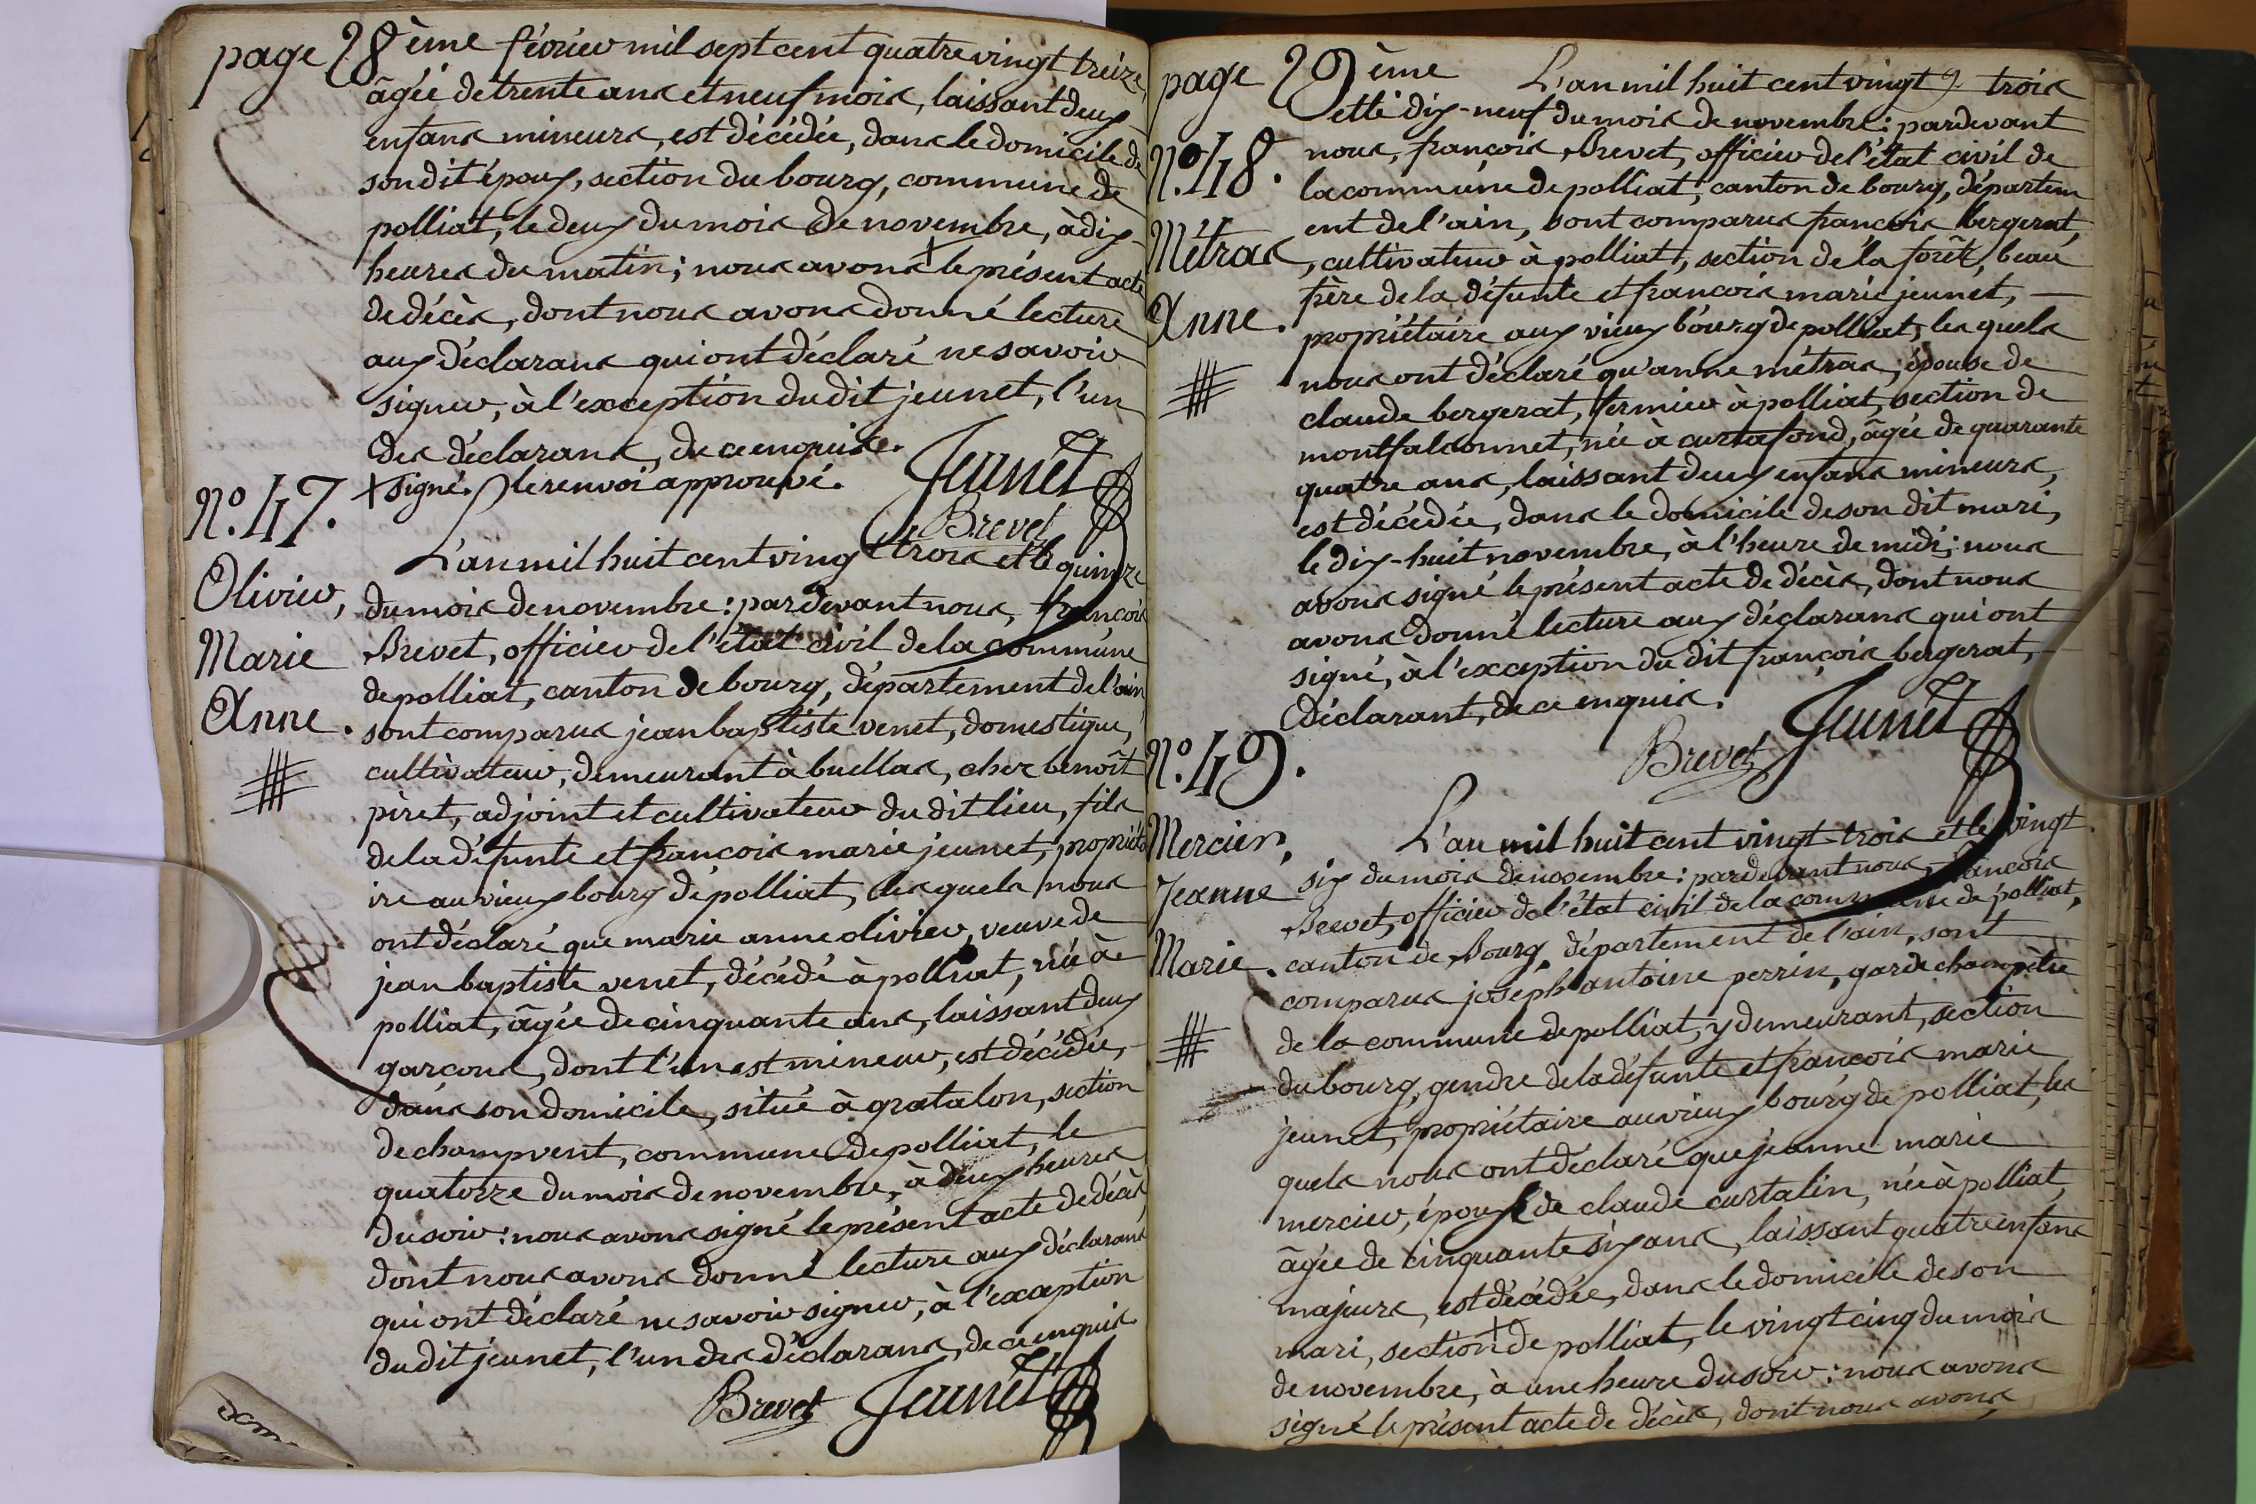 page 28ème février mil sept cent quatre vingt treize,
âgée de trente ans et neuf mois, laissant deux
enfans mineurs, est décédée, dans le domicile de
son dit époux, section du bourg, commune de
polliat, le deux du mois de novembre, à dix
heures du matin; nous avons + le présent acte
de décès, dont nous avons donné lecture
aux déclarans qui ont déclaré ne savoir
signer, à l'exception du dit jeunet, l'un
des déclarans, de ce enquise.
+ signé. le renvoi approuvé. Jeunet
Brevet
N.º 47.
Olivier,
Marie
Anne.
L'an mil huit cent vingt trois et le quinze
du mois de novembre: pardevant nous, françois
Brevet, officier de l'état civil de la commune
de polliat, canton de bourg, département de l'ain,
sont comparus jean baptiste venet, domestique,
cultivateur, demeurant à buellas, chez benoît
piret, adjoint et cultivateur du dit lieu, fils
de la défunte et francois marie jeunet, propriéta
ire au vieux bourg de polliat, les quels nous
ont déclaré que marie anne olivier, veuve de
jean baptiste venet, décédé à polliat, née à
polliat, âgée de cinquante ans, laissant deux
garçons, dont l'un est mineur, est décédée,
dans son domicile, situé à gratalon, section
de champvent, commune de polliat, le
quatorze du mois de novembre, à deux heures
du soir: nous avons signé le présent acte de décès,
dont nous avons donné lecture aux déclarans
qui ont déclaré ne savoir signer, à l'exception
du dit jeunet, l'un des déclarans, de ce enquis.
Brevet Jeunet
page 29ème L'an mil huit cent vingt trois
et le dix-neuf du mois de novembre: pardevant
nous, françois Brevet, officier de l'état civil de
la commune de polliat, canton de bourg, départem
ent de l'ain, sont comparus françois bergerat,
cultivateur à polliat, section de la forêt, beau
frère de la défunte et francois marie jeunet,
propriétaire aux vieux bourg de polliat, les quels
nous ont déclaré qu'anne métras, épouse de
claude bergerat, fermier à polliat, section de
montfalconnet, née à curtafond, âgée de quarante
quatre ans, laissant deux enfans mineurs,
est décédée, dans le domicile de son dit mari,
le dix-huit novembre, à l'heure de midi; nous
avons signé le présent acte de décès, dont nous
avons donné lecture aux déclarans qui ont
signé, à l'exception du dit françois bergerat,
déclarant, de ce enquis.
N.º 48.
Métras
Anne.
Brevet Jeunet
N.º 49.
Mercier,
Jeanne
Marie.
L'an mil huit cent vingt-trois et le vingt
six du mois de novembre: pardevant nous, francois
Brevet, officier de l'état civil de la commune de polliat,
canton de Bourg, département de l'ain, sont
comparus joseph antoine perrin, garde champêtre
de la commune de polliat, y demeurant, section
du bourg, gendre de la défunte et francois marie
jeunet, propriétaire au vieux bourg de polliat, les
quels nous ont déclaré que jeanne marie
mercier, épouse de claude curtalin, née à polliat,
âgée de cinquante six ans, laissant quatre enfans
majeurs, est décédée, dans le domicile de son
mari, section + de polliat, le vingt cinq du mois
de novembre, à une heure du soir: nous avons
signé le présent acte de décès, dont nous avons